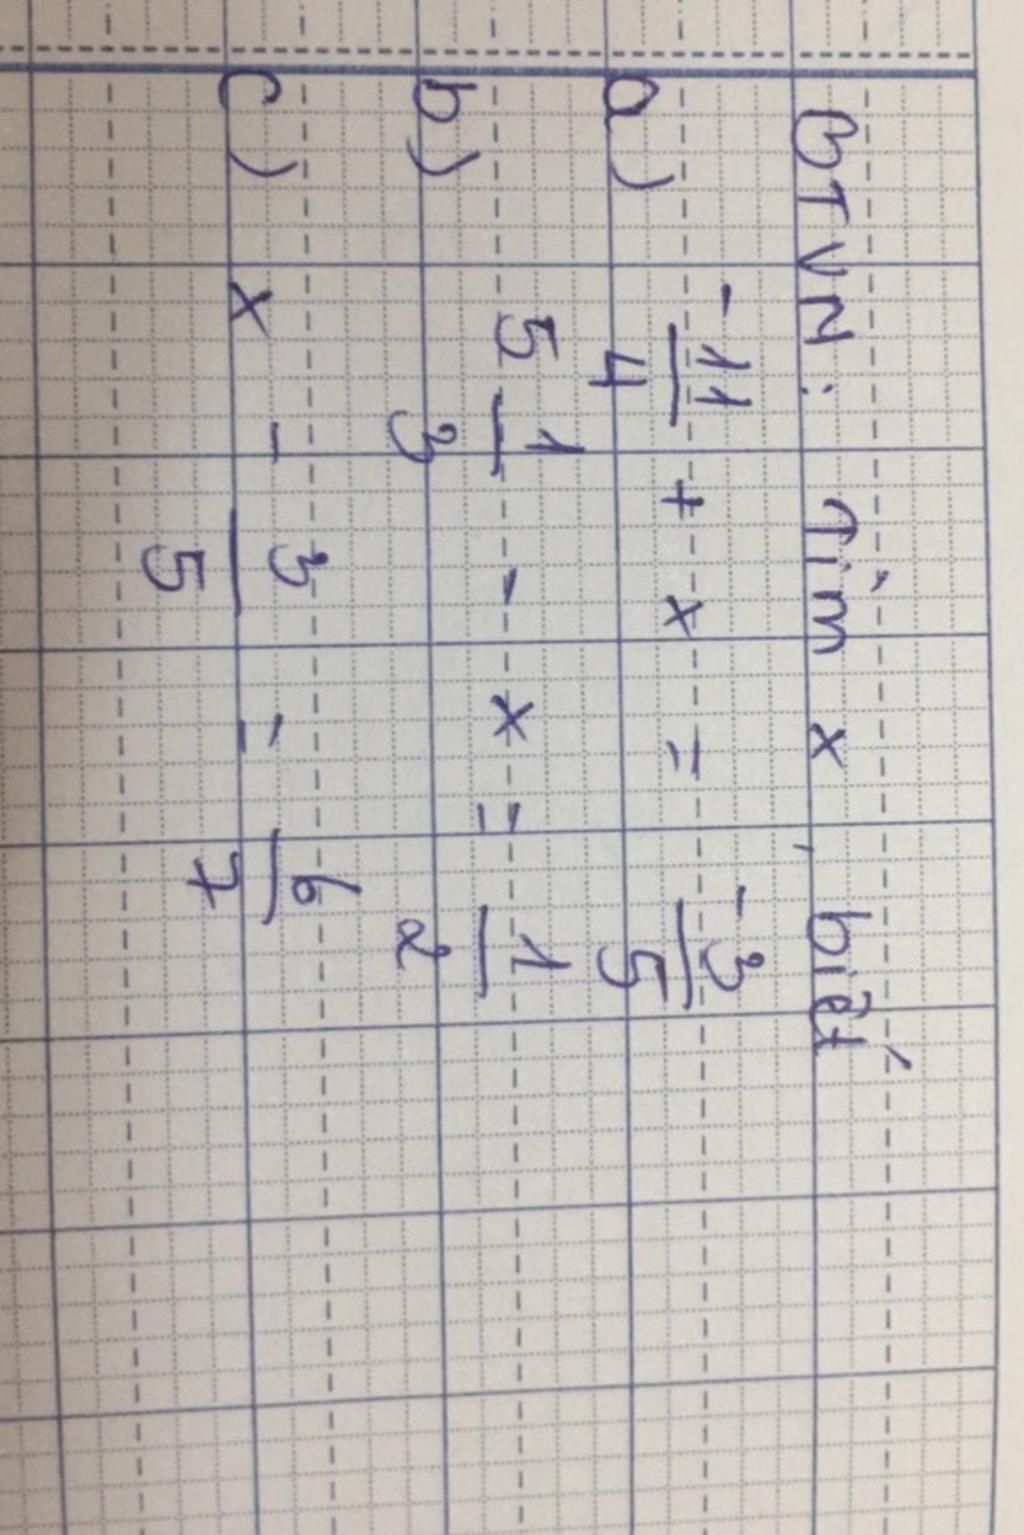 BTVN: Tìm x, biết
a) -11/4 + x = -3/5
b) 5 1/3 - x = 1/2
c) x - 3/5 = 6/7